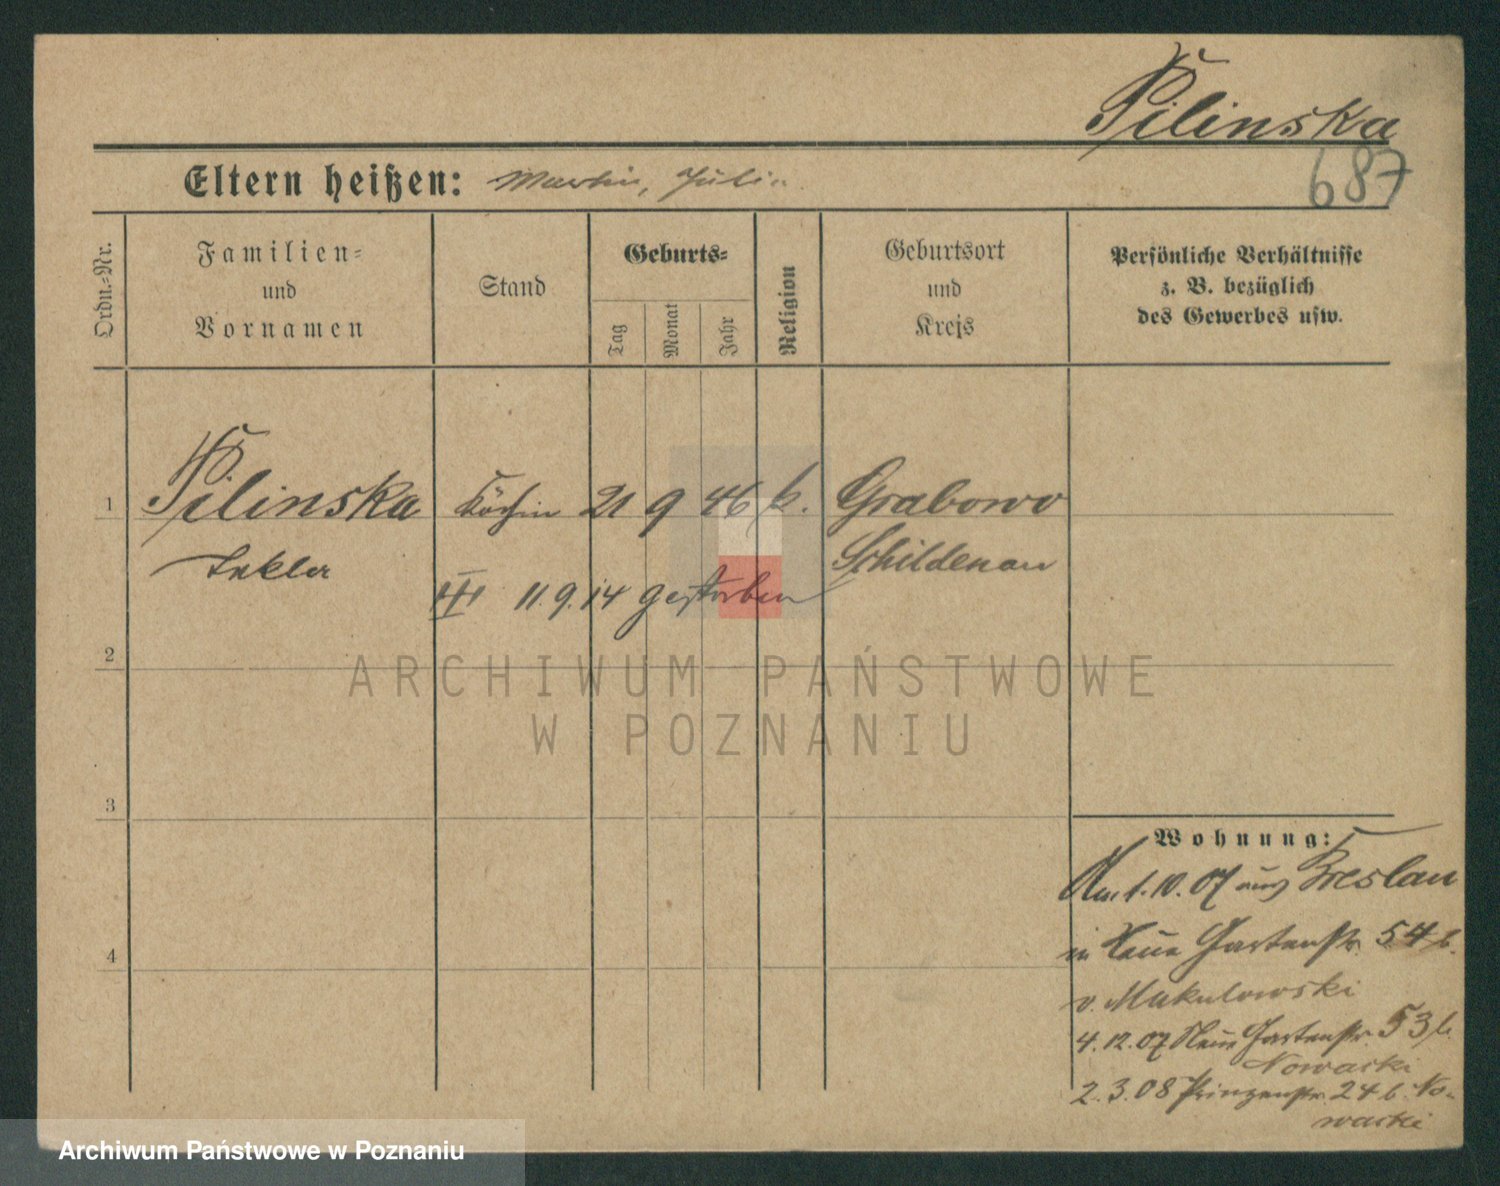 Pilinska
687
Eltern heißen: Martin, Julia
Ordn.-Nr.
Familien-
und
Vornamen
Stand
Geburts-
Tag
Monat
Jahr
Religion
Geburtsort
und
Kreis
Persönliche Verhältnisse
z. B. bezüglich
des Gewerbes usw.
1 Pilinska Köchin 21 9 46 k. Grabowo
Tekla Schildenau
III 11.9.14 gestorben
2
3
4
ARCHIWUM PAŃSTWOWE
W POZNANIU
Wohnung:
Am 1.10.07 aus Breslau
in Neue Gartenstr. 54 b.
v. Makulowski
4.12.07 Neue Gartenstr. 53 b.
Nowacki
2.3.08 Prinzenstr. 24 b. No-
wacki
Archiwum Państwowe w Poznaniu